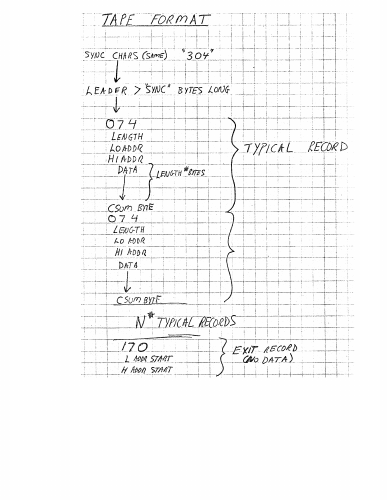 TAPE FORMAT
SYNC CHARS (SAME) "304"
LEADER > "SYNC" BYTES LONG
074
LENGTH
LOADDR
HIADDR
DATA
LENGTH # BYTES
TYPICAL RECORD
CSUM BYTE
074
LENGTH
LO ADDR
HI ADDR
DATA
CSUM BYTE
N # TYPICAL RECORDS
170
L ADDR START
H ADDR START
EXIT RECORD
(NO DATA)